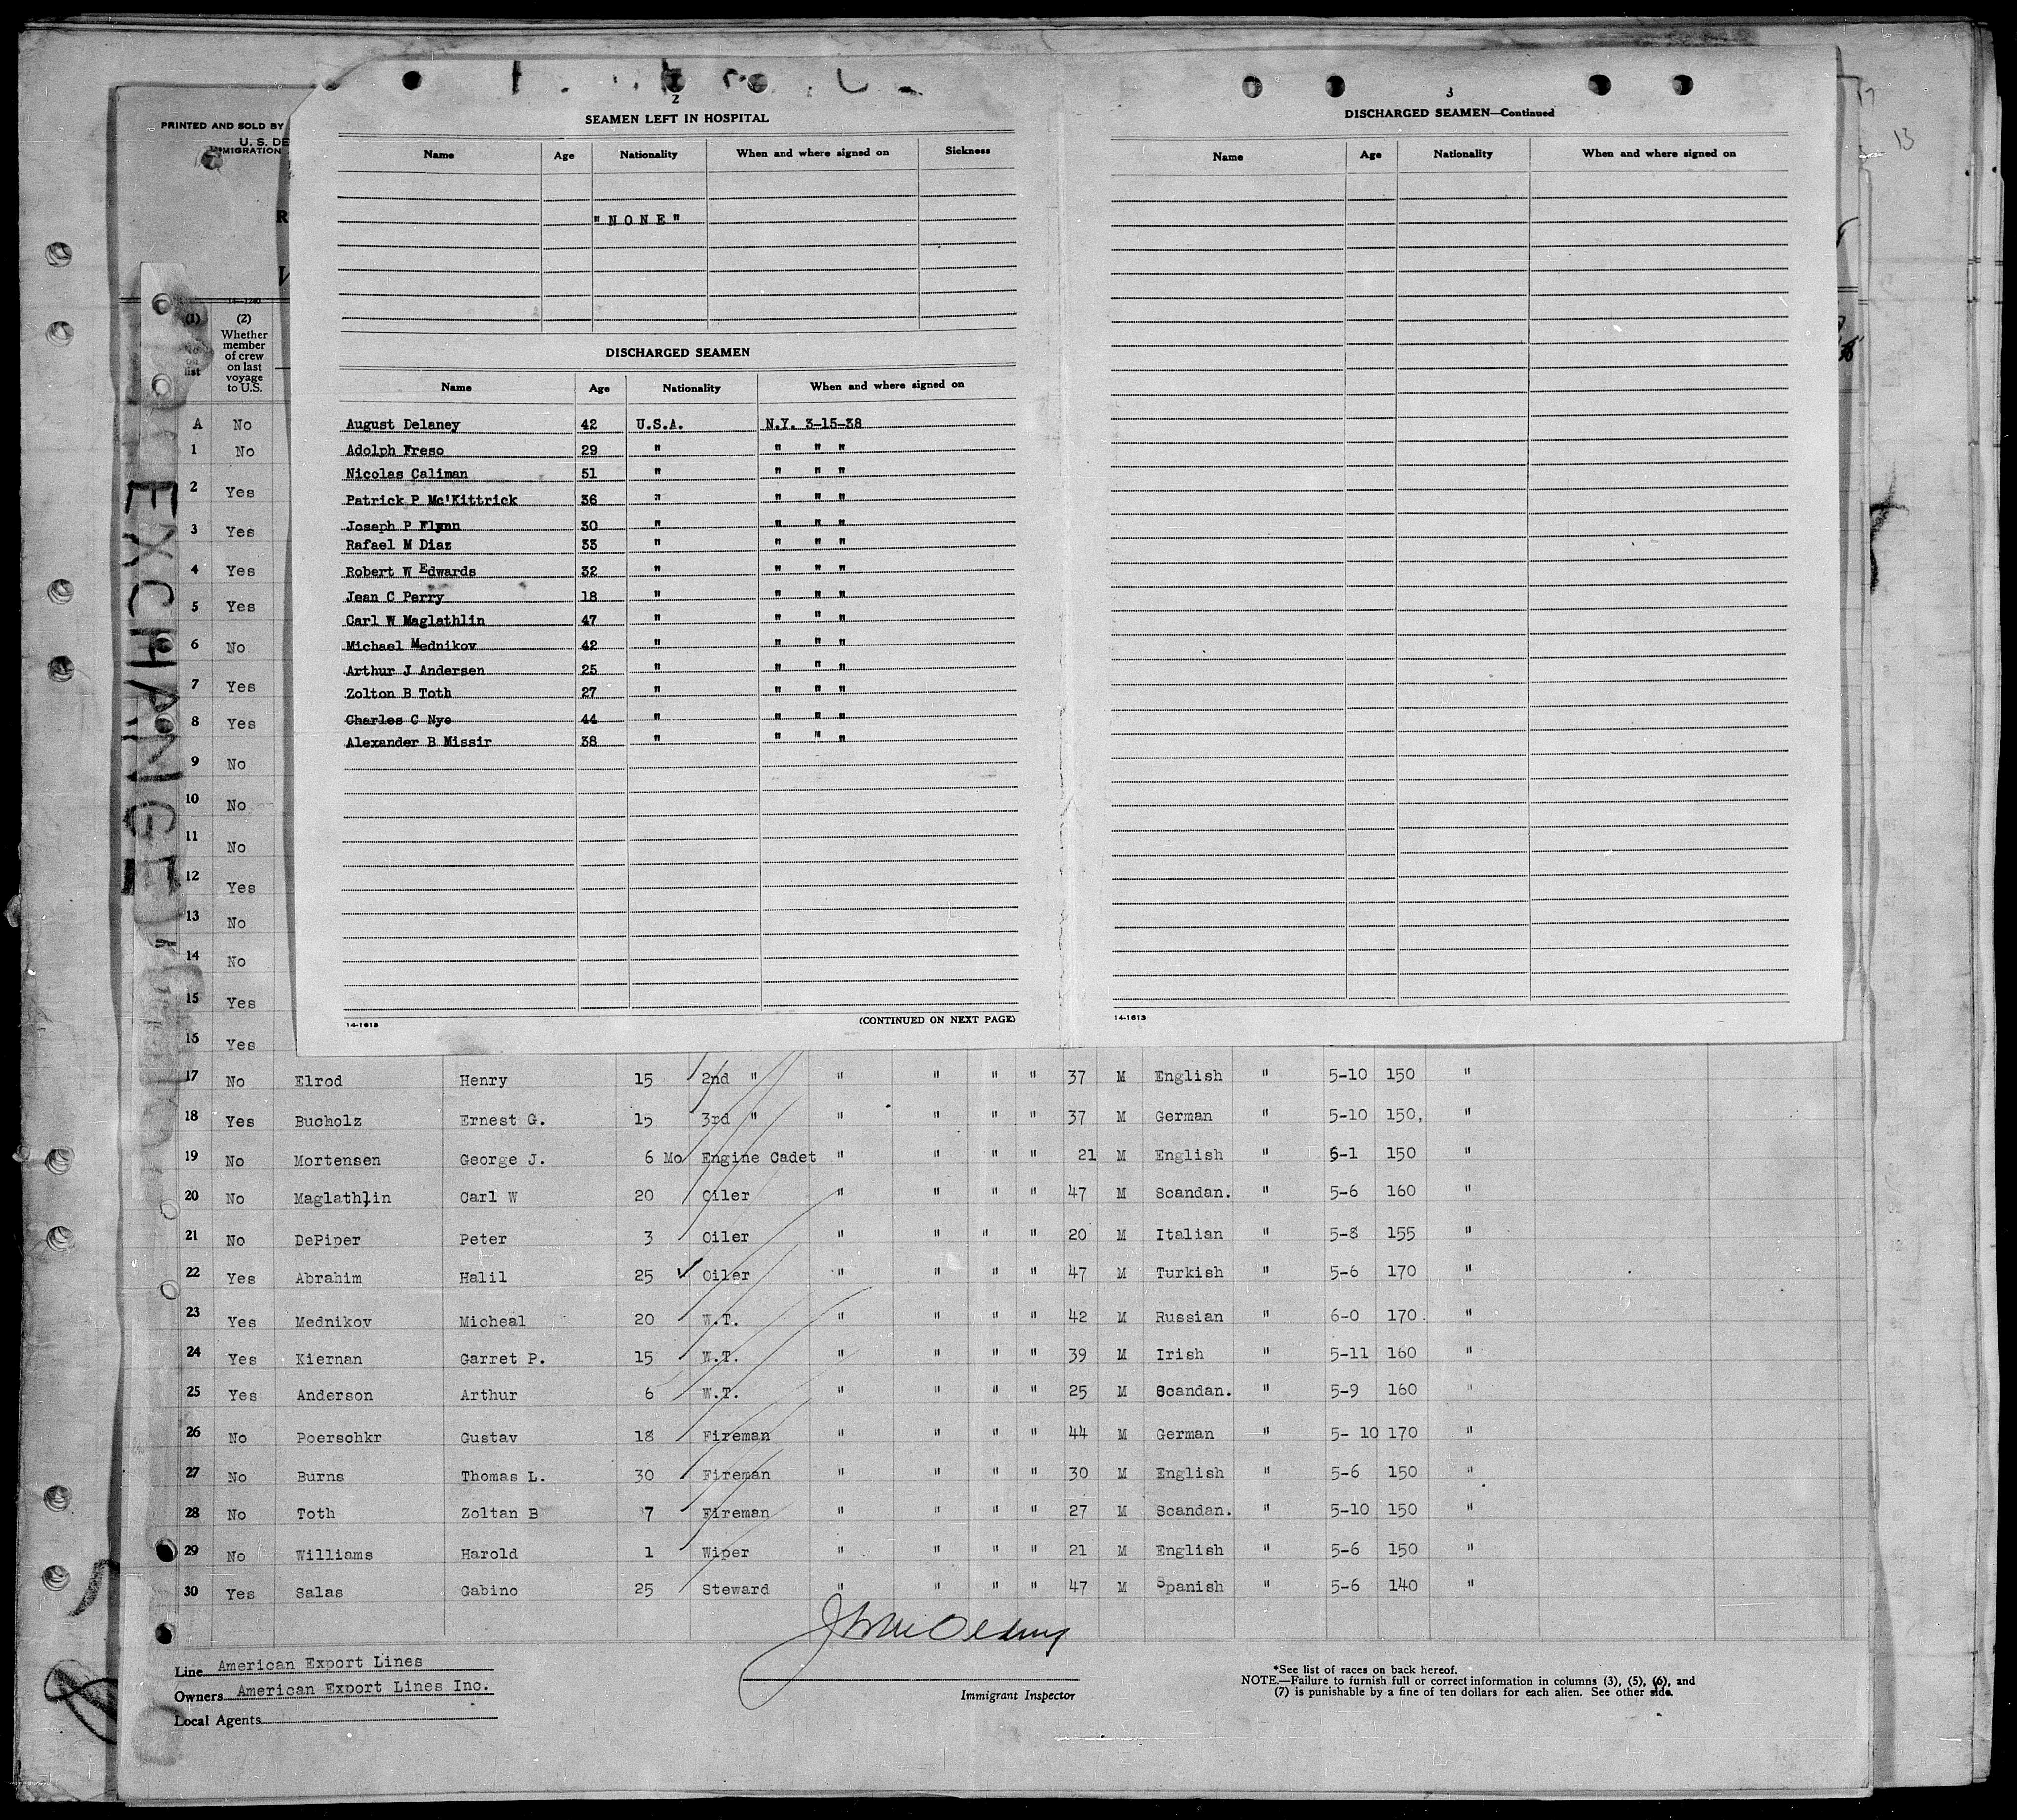 2
SEAMEN LEFT IN HOSPITAL
Name Age Nationality When and where signed on Sickness
"NONE"
DISCHARGED SEAMEN
Name Age Nationality When and where signed on
August Delaney 42 U.S.A. N.Y. 3-15-38
Adolph Freso 29 " " " "
Nicolas Caliman 51 " " " "
Patrick P Mc'Kittrick 36 " " " "
Joseph P Flynn 30 " " " "
Rafael M Diaz 33 " " " "
Robert W Edwards 32 " " " "
Jean C Perry 18 " " " "
Carl W Maglathlin 47 " " " "
Michael Mednikov 42 " " " "
Arthur J Andersen 25 " " " "
Zolton B Toth 27 " " " "
Charles C Nye 44 " " " "
Alexander B Missir 38 " " " "
14-1613 (CONTINUED ON NEXT PAGE)
3
DISCHARGED SEAMEN—Continued
Name Age Nationality When and where signed on
14-1613
13
PRINTED AND SOLD BY
U. S. DE
IMMIGRATION
R
14-1240
(1) (2)
No. on list
Whether
member
of crew
on last
voyage
to U.S.
EXCHANGE
A No
1 No
2 Yes
3 Yes
4 Yes
5 Yes
6 No
7 Yes
8 Yes
9 No
10 No
11 No
12 Yes
13 No
14 No
15 Yes
15 Yes
17 No Elrod Henry 15 2nd " " " " " 37 M English " 5-10 150 "
18 Yes Bucholz Ernest G. 15 3rd " " " " " 37 M German " 5-10 150, "
19 No Mortensen George J. 6 Mo Engine Cadet " " " " 21 M English " 6-1 150 "
20 No Maglathlin Carl W 20 Oiler " " " " 47 M Scandan. " 5-6 160 "
21 No DePiper Peter 3 Oiler " " " " 20 M Italian " 5-8 155 "
22 Yes Abrahim Halil 25 ✓ Oiler " " " " 47 M Turkish " 5-6 170 "
23 Yes Mednikov Micheal 20 W.T. " " " " 42 M Russian " 6-0 170. "
24 Yes Kiernan Garret P. 15 W.T. " " " " 39 M Irish " 5-11 160 "
25 Yes Anderson Arthur 6 W.T. " " " " 25 M Scandan. " 5-9 160 "
26 No Poerschkr Gustav 18 Fireman " " " " 44 M German " 5- 10 170 "
27 No Burns Thomas L. 30 Fireman " " " " 30 M English " 5-6 150 "
28 No Toth Zoltan B 7 Fireman " " " " 27 M Scandan. " 5-10 150 "
29 No Williams Harold 1 Wiper " " " " 21 M English " 5-6 150 "
30 Yes Salas Gabino 25 Steward " " " " 47 M Spanish " 5-6 140 "
Line American Export Lines
Owners American Export Lines Inc.
Local Agents
Immigrant Inspector
*See list of races on back hereof.
NOTE.—Failure to furnish full or correct information in columns (3), (5), (6), and
(7) is punishable by a fine of ten dollars for each alien. See other side.